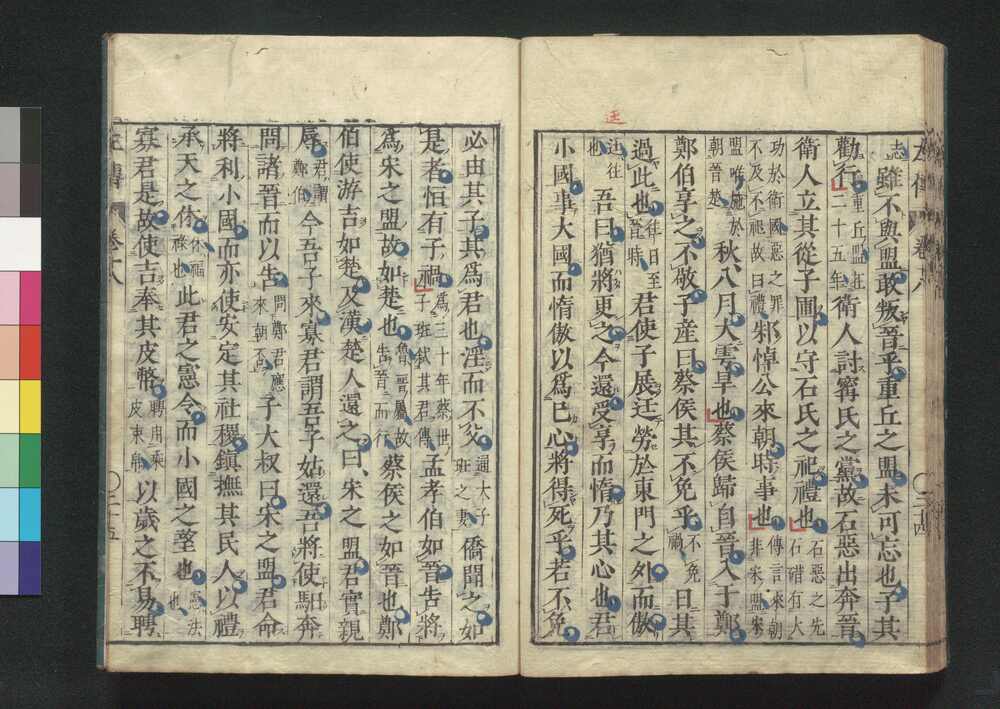 左傳 卷十八 ○三十四
志雖不與盟敢叛晉乎重丘之盟未可忘也子其
勸行重丘盟在二十五年衛人討甯氏之黨故石惡出奔晉
衛人立其從子圃以守石氏之祀禮也石惡之先石碏有大
功於衛國惡之罪不及不祀故曰禮邾悼公來朝時事也傳言來朝非宋盟宋
盟唯施於朝晉楚秋八月大雩旱也蔡侯歸自晉入于鄭
鄭伯享之不敬子產曰蔡侯其不免乎不免禍日其
過此也往日至晉時君使子展迋勞於東門之外而傲
迋往也吾曰猶將更之今還受享而惰乃其心也君
小國事大國而惰傲以爲己心將得死乎若不免
必由其子其爲君也淫而不父通太子班之妻僑聞之如
是者恒有子禍爲三十年蔡世子班弑其君傳孟孝伯如晉告將
爲宋之盟故如楚也魯晉屬故告晉而行蔡侯之如晉也鄭
伯使游吉如楚及漢楚人還之曰宋之盟君實親
辱君謂鄭伯今吾子來寡君謂吾子姑還吾將使馹奔
問諸晉而以告問鄭君應來朝否子大叔曰宋之盟君命
將利小國而亦使安定其社稷鎮撫其民人以禮
承天之休休福祿也此君之憲令而小國之望也憲法也
寡君是故使吉奉其皮幣聘用乘皮束帛以歲之不易聘
左傳 卷十八 ○三十五